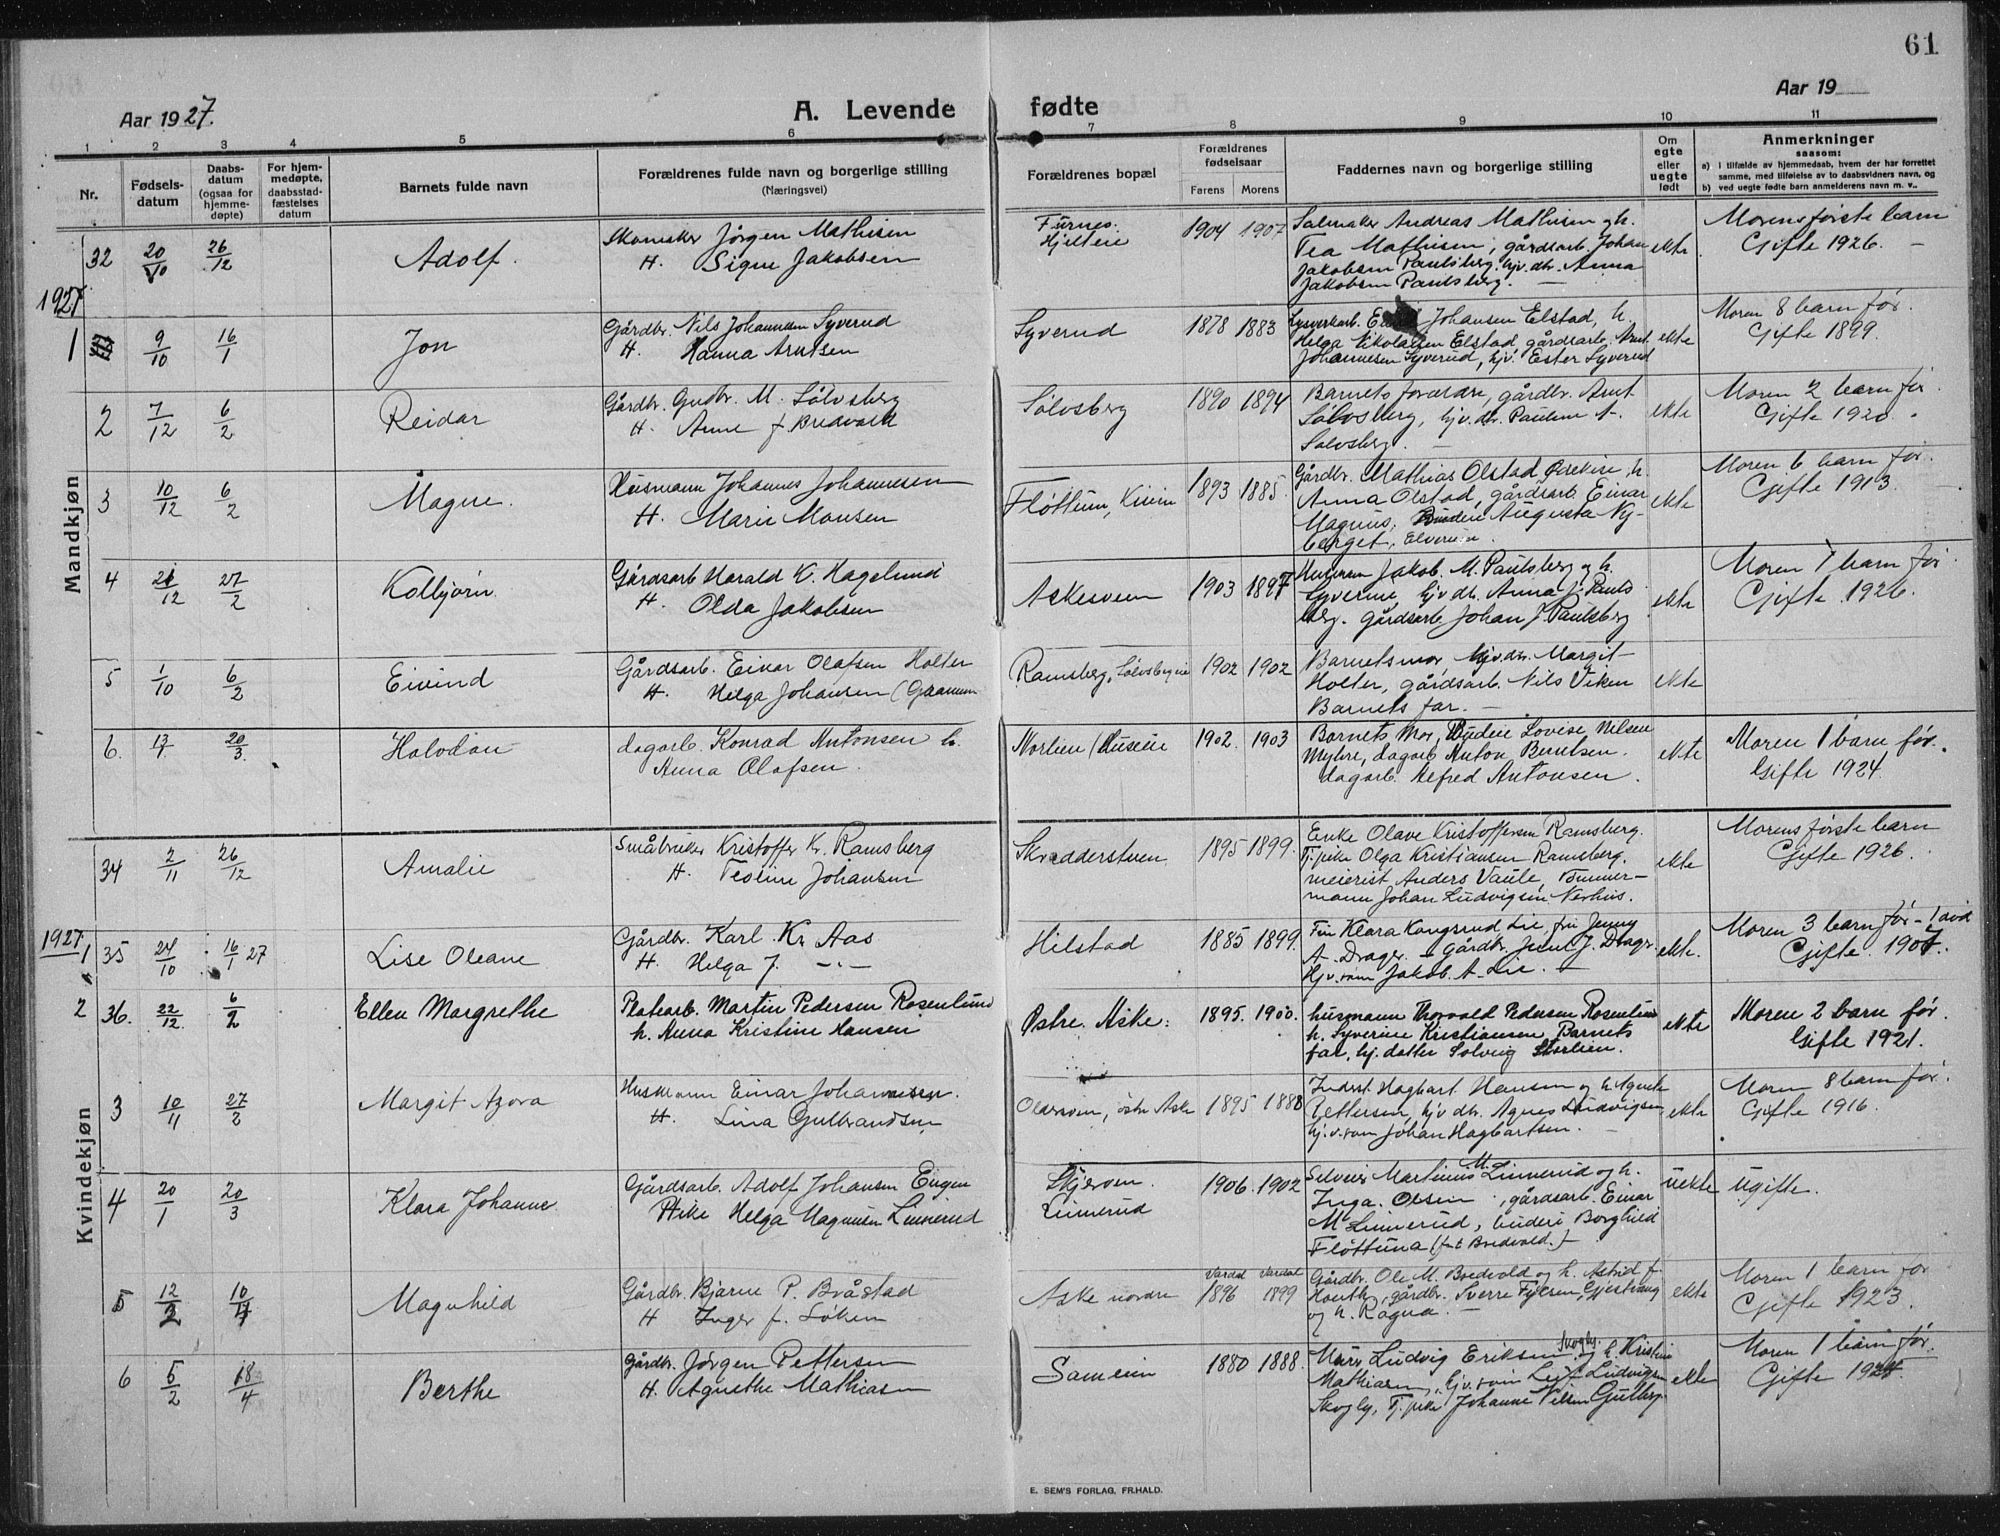 61
Aar 1927.
A. Levende fødte
Aar 19
1 2 3 4 5 6 7 8 9 10 11
Nr.
Fødsels-
datum
Daabs-
datum
(ogsaa for
hjemme-
døpte)
For hjem-
medøpte,
daabsstad-
fæstelses
datum
Barnets fulde navn
Forældrenes fulde navn og borgerlige stilling
(Næringsvei)
Forældrenes bopæl
Forældrenes
fødselsaar
Førens Morens
Faddernes navn og borgerlige stilling
Om
egte
eller
uegte
født
Anmerkninger
saasom:
a) I tilfælde av hjemmedaab, hvem der har forrettet
samme, med tilføielse av to daabsvidners navn, og
b) ved uegte fødte barn anmelderens navn m. v..
Mandkjøn
32 20/10 26/12 Adolf.
Skomaker Jörgen Mathisen
H. Signe Jakobsen
Furnes.
1904 1907
Salmaker Andreas Mathisen og h.
Tea Mathisen, gårdsarb. Johan
Jakobsen Paulsberg. hjv. dtr. Anna
Jakobsen Paulsberg. —
ekte
Morens første barn
Gifte 1926. —
1927
1 9/10 16/1 Jon
Gårdbr. Nils Johannesen Syverud
H. Hanna Arntsen
Syverud
1878 1883
Johansen Elstad, h.
Helga Nikolaisen Elstad, gårdsarb. Arnt
Johannesen Syverud, hjv. Ester Syverud
ekte
Moren 8 barn før.
Gifte 1899.
2 7/12 6/2 Reidar
Gårdbr. Gudbr. M. Sölvsberg
H. Anne f. Bredvold
Sölvsberg
1890 1894
Barnets foreldre, gårdbr. Arnt
Sölvsberg, hjv. dtr. Pauline A.
Sölvsberg. —
ekte
Moren 2 barn før.
Gifte 1920.
3 10/12 6/2 Magne.
Husmann Johannes Johannesen
H. Marie Monsen
Fløttum,
1893 1885.
Gårdbr. Mathias Olstad h.
Anna Olstad, gårdsarb. Einar
Magnus, Budeie Augusta Ny-
berget, Elverum.
ekte
Moren 6 barn før.
Gifte 1913.
4 12 27/2 Kolbjörn
Gårdsarb Harald K. Hagelund
H. Olda Jakobsen
Askesveen
1903 1897
Jakob. M. Paulsberg og h.
Syverine, hjv dtr. Anna J. Pauls
berg. gårdsarb Johan J. Paulsberg
ekte
Moren 1 barn før.
Gifte 1926.
5 1/10 6/2 Eivind
Gårdsarb. Einar Olafsen Holter
H. Helga Johansen
Ramsberg,
1902 1902
Barnets mor hjv. dtr. Margit
Holter, gårdsarb. Nils Viken
Barnets far. —
ekte
6. 13/1 20/3 Halvdan
dagarb. Konrad Antonsen h.
Anna Olafsen.
1902. 1903
Barnets Mor, Budeie Lovise Nilsen
Myhre, dagarb Anton Berntsen.
dagarb. Alfred Antonsen.
ekte
Moren 1 barn før.
Gifte 1924.
Kvindekjøn
34 2/11 26/12 Amalie
Småbruker Kristoffer Kr. Ramsberg
H. Johansen
Skreddersteen
1895 1899.
Enke Olave Kristoffersen Ramsberg.
Tj. pike Olga Kristiansen Ramsberg,
meierist Anders Vaule, Tömmer-
mann Johan Ludvigsen Nerhus.
ekte
Morens første barn
Gifte 1926.
1927
1 35 24/10 16/1 27 Lise Oleane
Gårdbr. Karl Kr. Aas
H. Helga J. — " —
Hilstad
1885 1899.
Fru Klara Kongsrud Lie, fru Jenny
A. Drager. — Gårdbr.
Hjv. sønn Jakob. A. Lie. —
ekte.
Moren 3 barn før - 1 død
Gifte. 1907.
2 36. 22/12 6/2 Ellen Margrethe
Platearb. Martin Pedersen Rosenlund
h. Anna Kristine Hansen
Østre Aske.
1895. 1900.
husmann Thorvald Pedersen Rosenlund
h. Syverine Kristiansen, Barnets
far, hj. datter Solveig Storlien.
ekte
Moren 2 barn før.
Gifte 1921.
3 10/11 27/2 Margit Azora
Husmann Einar Johannesen.
H. Lina Gulbrandsen
östre Aske
1895 1888
Inderst Hagbart Hansen og h. Agnete
Pettersen, hjv dtr. Agnes Ludvigsen
hj. v. sønn Johan Hagbartsen. —
ekte
Moren 8 barn før.
Gifte 1916.
4 20/1 20/3 Klara Johanne
Gårdsarb. Adolf Johansen Eugen
Pike Helga Magnusen Linnerud
Linnerud
1906. 1902
Martinus M. Linnerud og h.
Inga Olsen, gårdsarb. Einar
M Linnerud, budeie Borghild
Fløttum
uekte
Ugifte.
5 12/2 10/4 Magnhild
Gårdbr. Bjarne P. Bråstad
H Inger f. Löken
Aske nordre
Vardal Vardal
1896 1899
Gårdbr. Ole M. Bredvold og h. Astrid f.
gårdbr. Sverre
og h. Ragna. —
ekte
Moren 1 barn før
Gifte 1923.
6 5/2 18/4 Berthe
Gårdbr. Jörgen Pettersen
H. Agnethe Mathiasen
1880 1888.
Murer Ludvig Eriksen Skogly. og h. Kristine
Mathiasen, hjv. sønn Leif Ludvigsen
Skogly, Tj. pike Johanne Nilsen
ekte
Moren 1 barn før
Gifte 1925.
E. SEM'S FORLAG, FR.HALD.